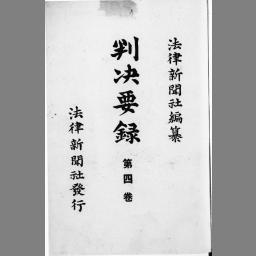 法律新聞社編纂
判决要録
第四卷
法律新聞社發行